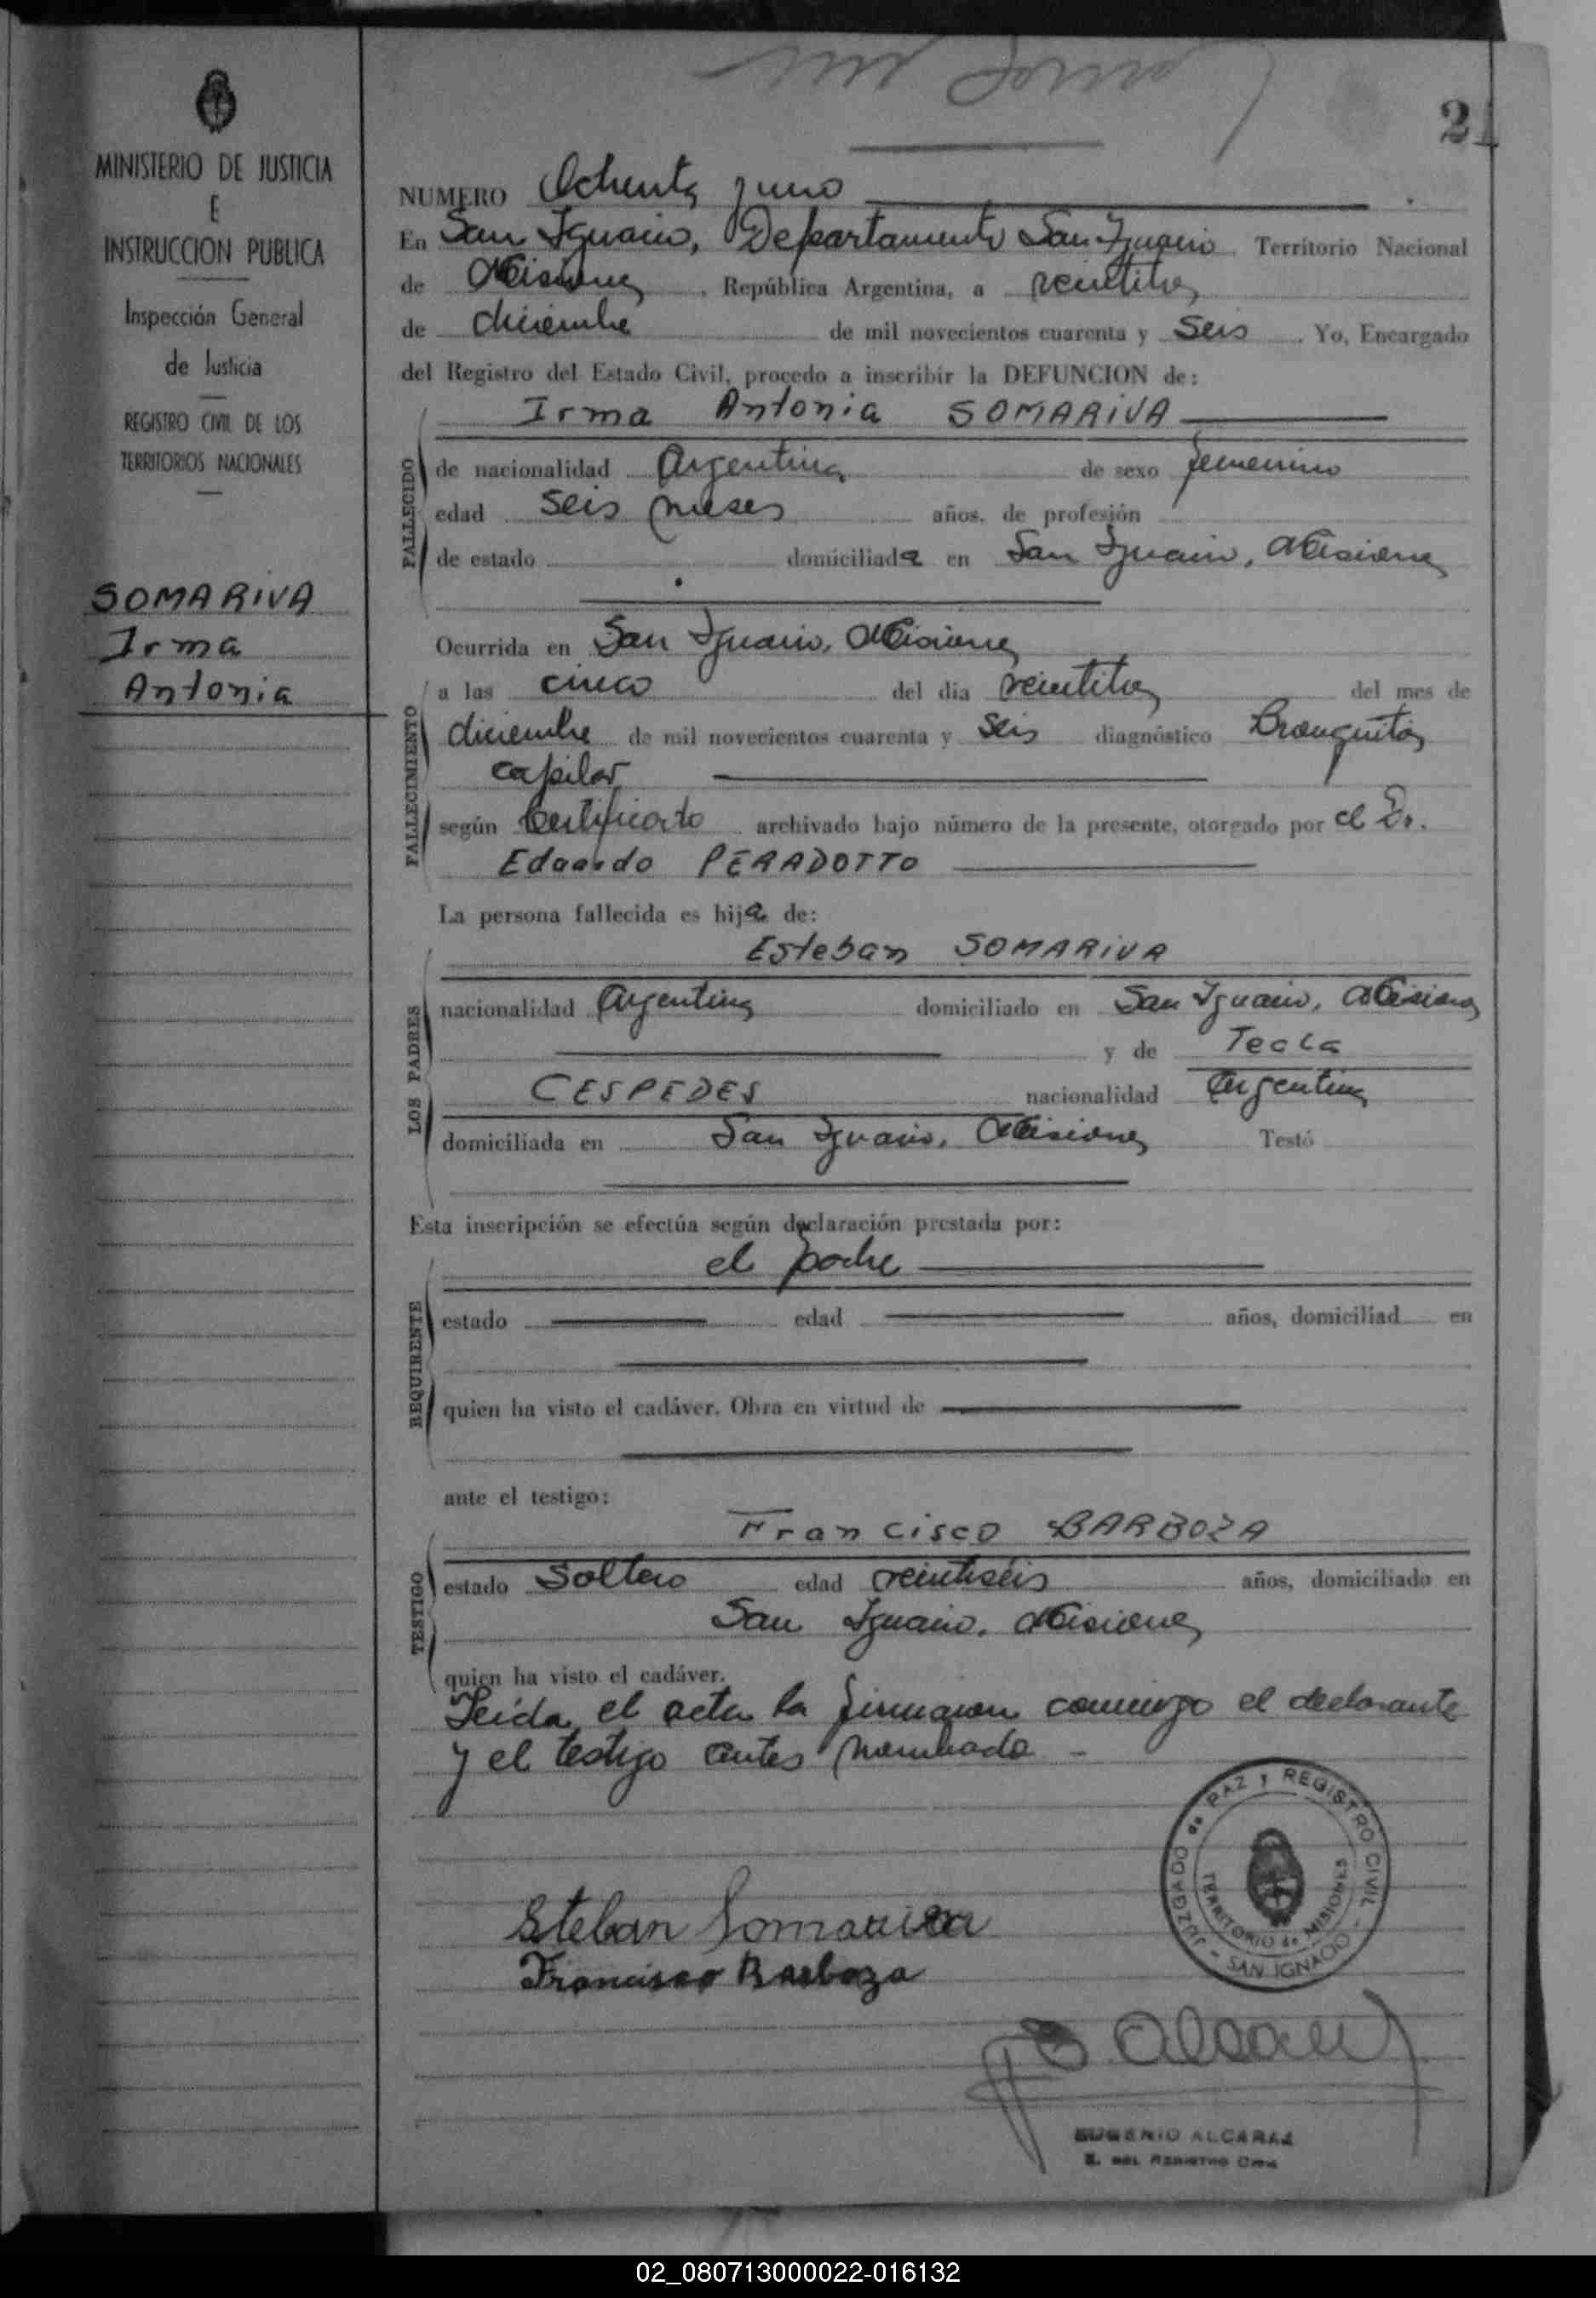 21
MINISTERIO DE JUSTICIA
E
INSTRUCCION PUBLICA
Inspección General
de Justicia
REGISTRO CIVIL DE LOS
TERRITORIOS NACIONALES
SOMARIVA
Irma
Antonia
NUMERO Ochenta y uno
En San Ignacio, Departamento San Ignacio Territorio Nacional
de Misiones, República Argentina, a veintitres
de diciembre de mil novecientos cuarenta y Seis. Yo, Encargado
del Registro del Estado Civil, procedo a inscribir la DEFUNCION de:
Irma Antonia SOMARIVA
FALLECIDO
de nacionalidad Argentina de sexo femenino
edad seis meses años, de profesión
de estado domiciliada en San Ignacio, Misiones
FALLECIMIENTO
Ocurrida en San Ignacio, Misiones
a las cinco del dia veintitres del mes de
diciembre de mil novecientos cuarenta y Seis diagnóstico Bronquitis
capilar
según Certificado archivado bajo número de la presente, otorgado por el Dr.
Eduardo PERADOTTO
La persona fallecida es hija de:
LOS PADRES
Esteban SOMARIVA
nacionalidad Argentina domiciliado en San Ignacio, Misiones
y de Tecla
CESPEDES nacionalidad Argentina
domiciliada en San Ignacio, Misiones Testó
Esta inscripción se efectúa según declaración prestada por:
REQUIRENTE
el padre
estado edad años, domiciliad en
quien ha visto el cadáver. Obra en virtud de
ante el testigo:
TESTIGO
Francisco BARBOZA
estado Soltero edad veintiseis años, domiciliado en
San Ignacio, Misiones
quien ha visto el cadáver.
Leida el acta la firmaron conmigo el declarante
y el testigo antes nombrado -
JUZGADO de PAZ Y REGISTRO CIVIL - SAN IGNACIO -
TERRITORIO de MISIONES
Esteban Somariva
Francisco Barboza
EUGENIO ALCARAZ
E. DEL REGISTRO CIVIL
02_080713000022-016132